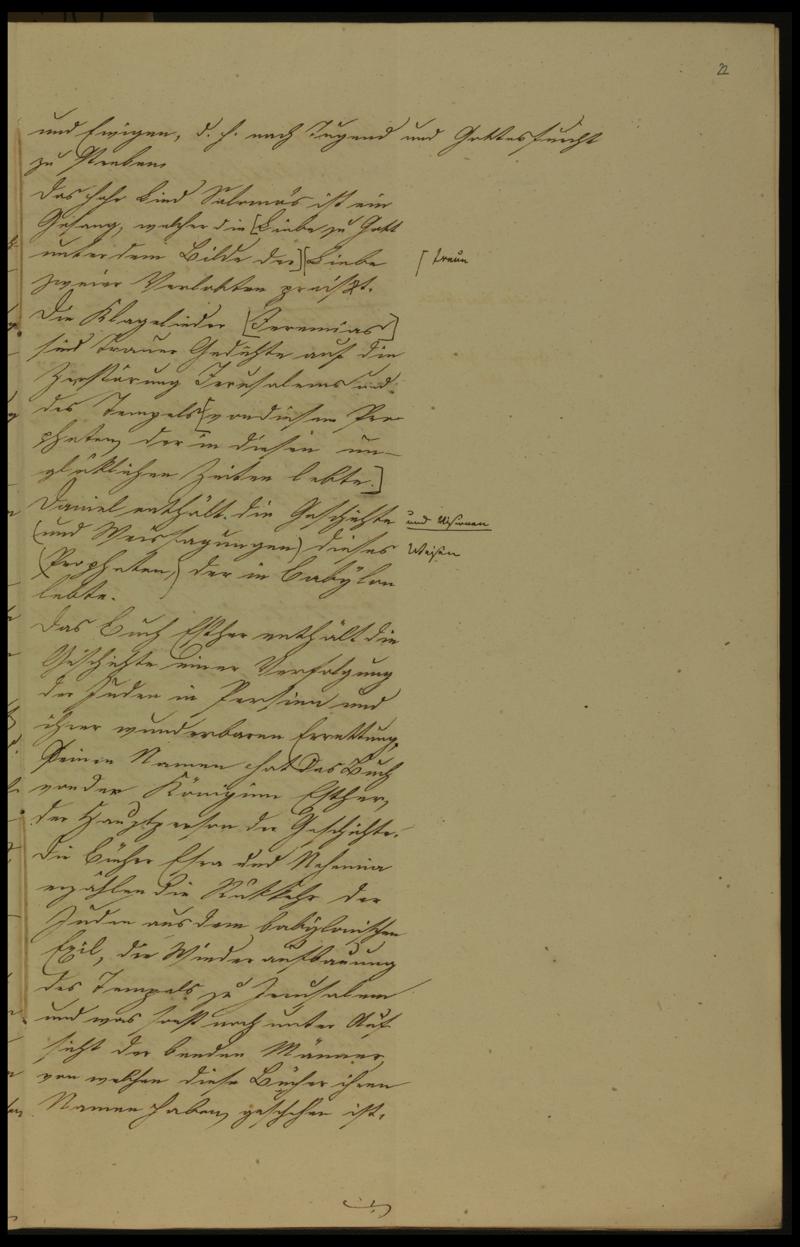 22
und Ewigen, d. h. nach Tugend und Gottesfurcht
zu streben.
Das hohe Lied Salomos ist ein
Gesang, welcher die [Liebe zu Gott
unter dem Bilde der] [Liebe
[ treue
zweier Verlobten preißt.
Die Klagelieder [Jeremias]
sind Trauer Gedichte auf die
Zerstörung Jerusalems und
des Tempels [von diesem Pro-
pheten, der in diesen un-
glüklichen Zeiten lebte.]
Daniel enthält die Geschichte
und Visionen
(und Weissagungen) dieses
Weisen
(Propheten,) der in Babÿlon
lebte.
Das Buch Esther enthält die
Geschichte einer Verfolgung
der Juden in Persien und
ihrer wunderbaren Errettung.
Seinen Namen hat das Buch
von der Königinn Esther,
der Hauptperson der Geschichte.
Die Bücher Esra und Nehemia
erzählen die Rükkehr der
Juden aus dem babÿlonischen
Exil, die Wiederaufbauung
des Tempels zu Jerusalem
und was sonst noch unter Auf-
sicht der beyden Männer,
von welchen diese Bücher ihren
Namen haben, geschehen ist.